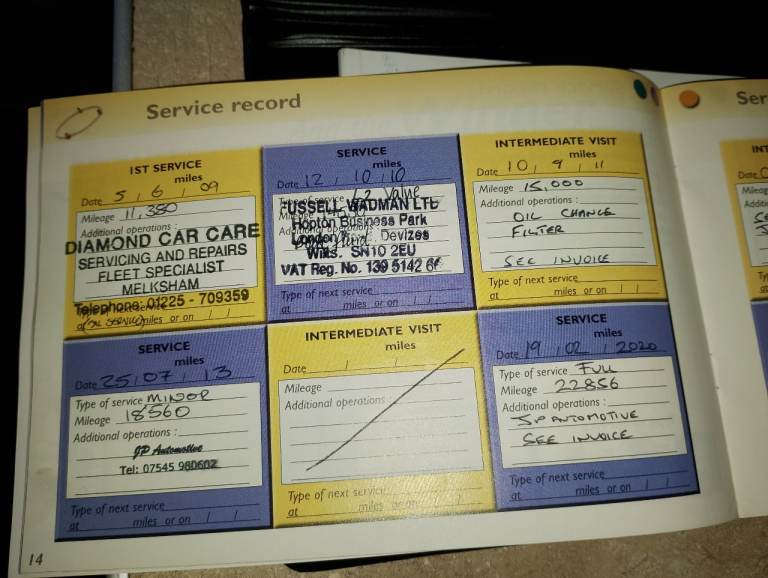 Service record
1ST SERVICE
miles
Date 5 / 6 / 09
Mileage 11,380
Additional operations :
DIAMOND CAR CARE
SERVICING AND REPAIRS
FLEET SPECIALIST
MELKSHAM
Telephone: 01225 - 709359
miles or on / /
SERVICE
miles
Date 12 / 10 / 10
Type of service Value
Mileage
RUSSELL WADMAN LTD
Hopton Business Park
London Devizes
Wilts. SN10 2EU
VAT Reg. No. 139 5142 6
Type of next service
at miles or on / /
INTERMEDIATE VISIT
miles
Date 10 / 9 / 11
Mileage 15,000
Additional operations :
OIL CHANGE
FILTER
SEE INVOICE
Type of next service
at miles or on / /
SERVICE
miles
Date 25 / 07 / 13
Type of service MINOR
Mileage 18560
Additional operations :
JP Automotive
Tel: 07545 980602
Type of next service
at miles or on / /
INTERMEDIATE VISIT
miles
Date / /
Mileage
Additional operations :
Type of next service
at miles or on / /
SERVICE
miles
Date 19 / 02 / 2020
Type of service FULL
Mileage 22856
Additional operations :
JP AUTOMOTIVE
SEE INVOICE
Type of next service
at miles or on / /
14
Ser
INT
Date
Mileag
Additi